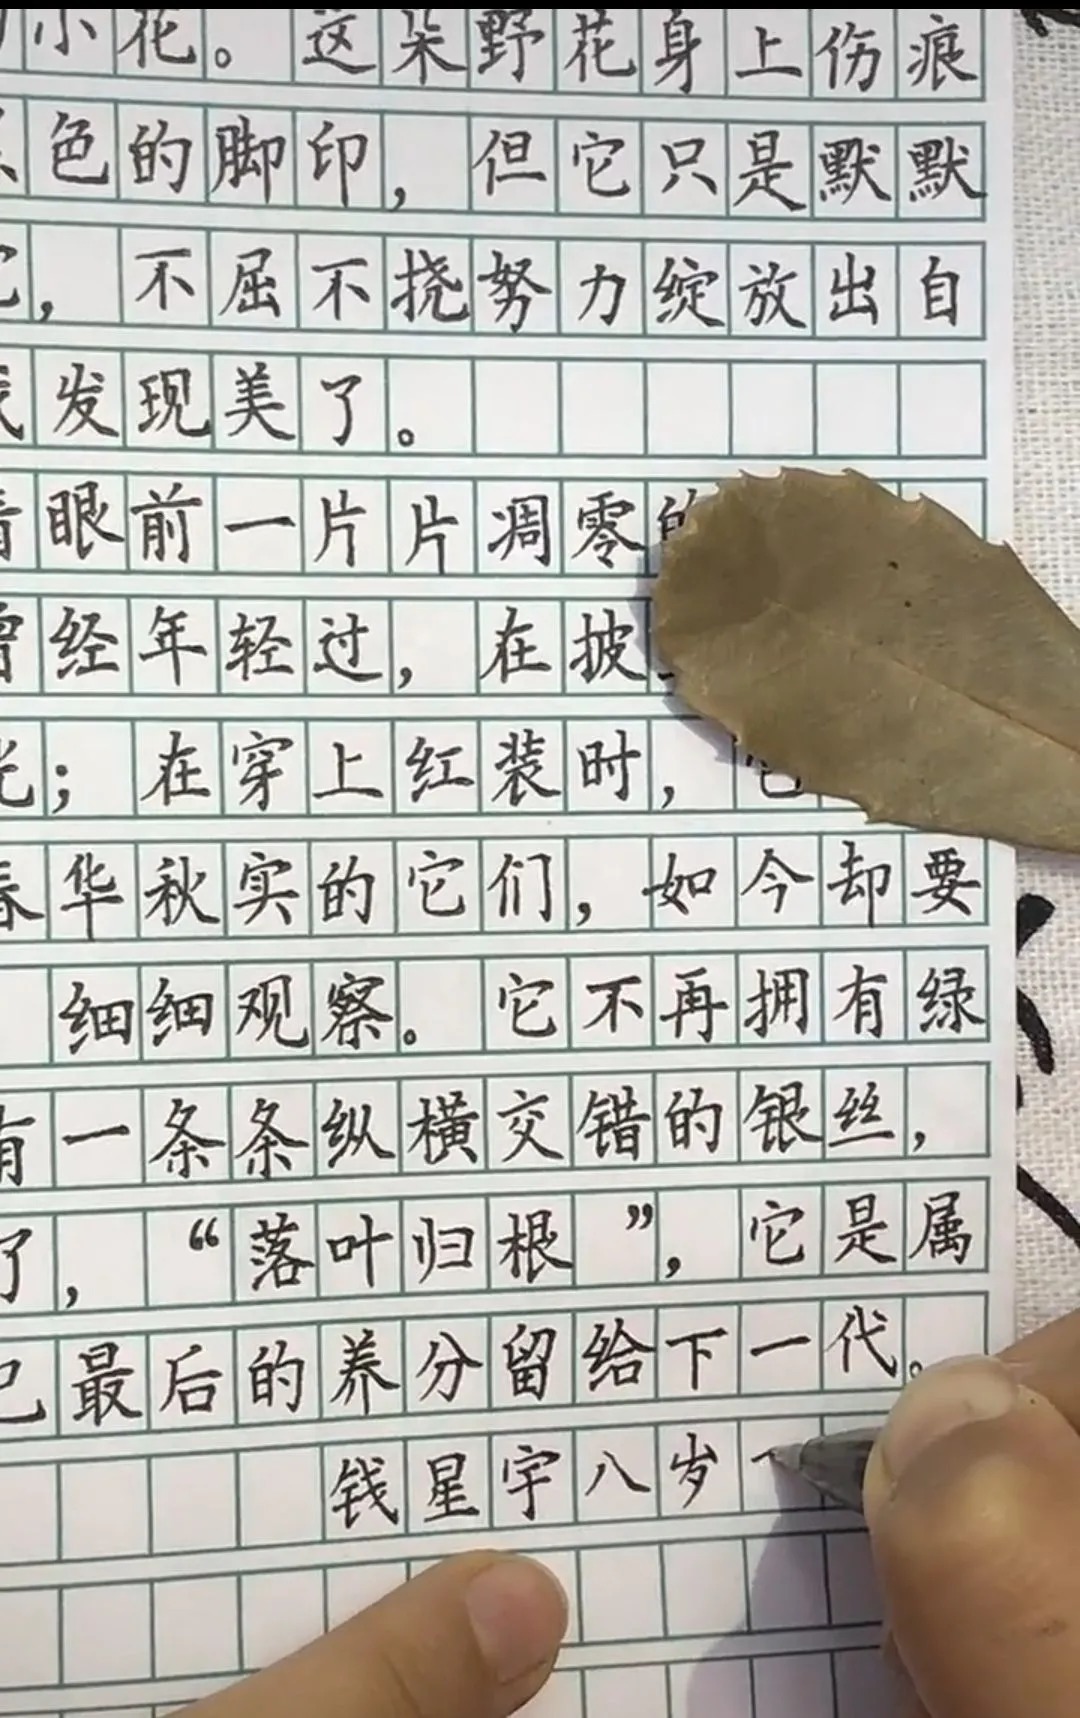 小花。这朵野花身上伤痕
色的脚印，但它只是默默
，不屈不挠努力绽放出自
发现美了。
眼前一片片凋零的
曾经年轻过，在披
光；在穿上红装时，它
春华秋实的它们，如今却要
细细观察。它不再拥有绿
有一条条纵横交错的银丝，
了，“落叶归根”，它是属
己最后的养分留给下一代。
钱星宇八岁